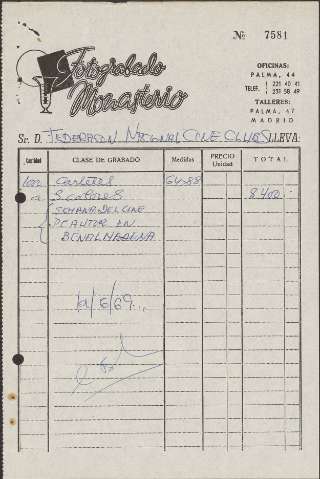 Fotograbado
Monasterio
№ 7581
OFICINAS:
PALMA, 44
TELEF. { 221 40 41
231 58 49
TALLERES:
PALMA, 47
MADRID
Sr. D. FEDERACION NACIONAL CINE CLUBS LLEVA:
Cantidad CLASE DE GRABADO Medidas PRECIO Unidad TOTAL
100 Carteles 64x88
a 3 colores 8.400
SEMANA DEL CINE
DE AUTOR EN
BENALMADENA
/6/69